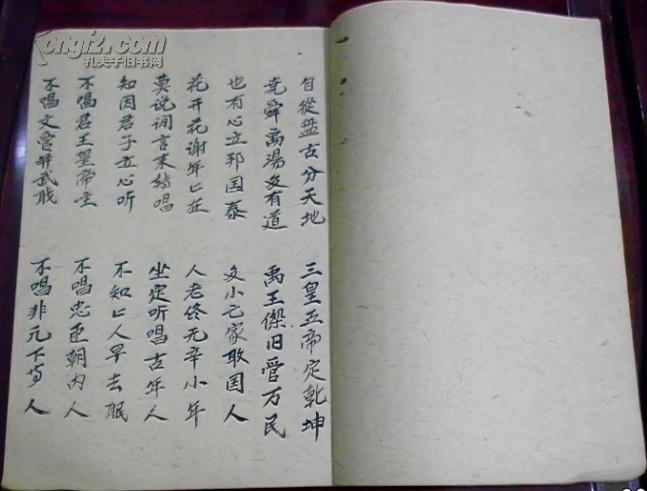 自從盘古分天地 三皇五帝定乾坤
尧舜禹湯多有道 禹王傑旧管万民
也有心立邦国泰 多小亡家敗国人
花开花谢年〻在 人老终无辛小年
莫说润言末转唱 坐定听唱古年人
知因君子立心听 不知〻人早去眠
不唱君王聖帝主 不唱忠臣朝内人
不唱文管並武戝 不唱非元下等人
kongfz.com
孔夫子旧书网